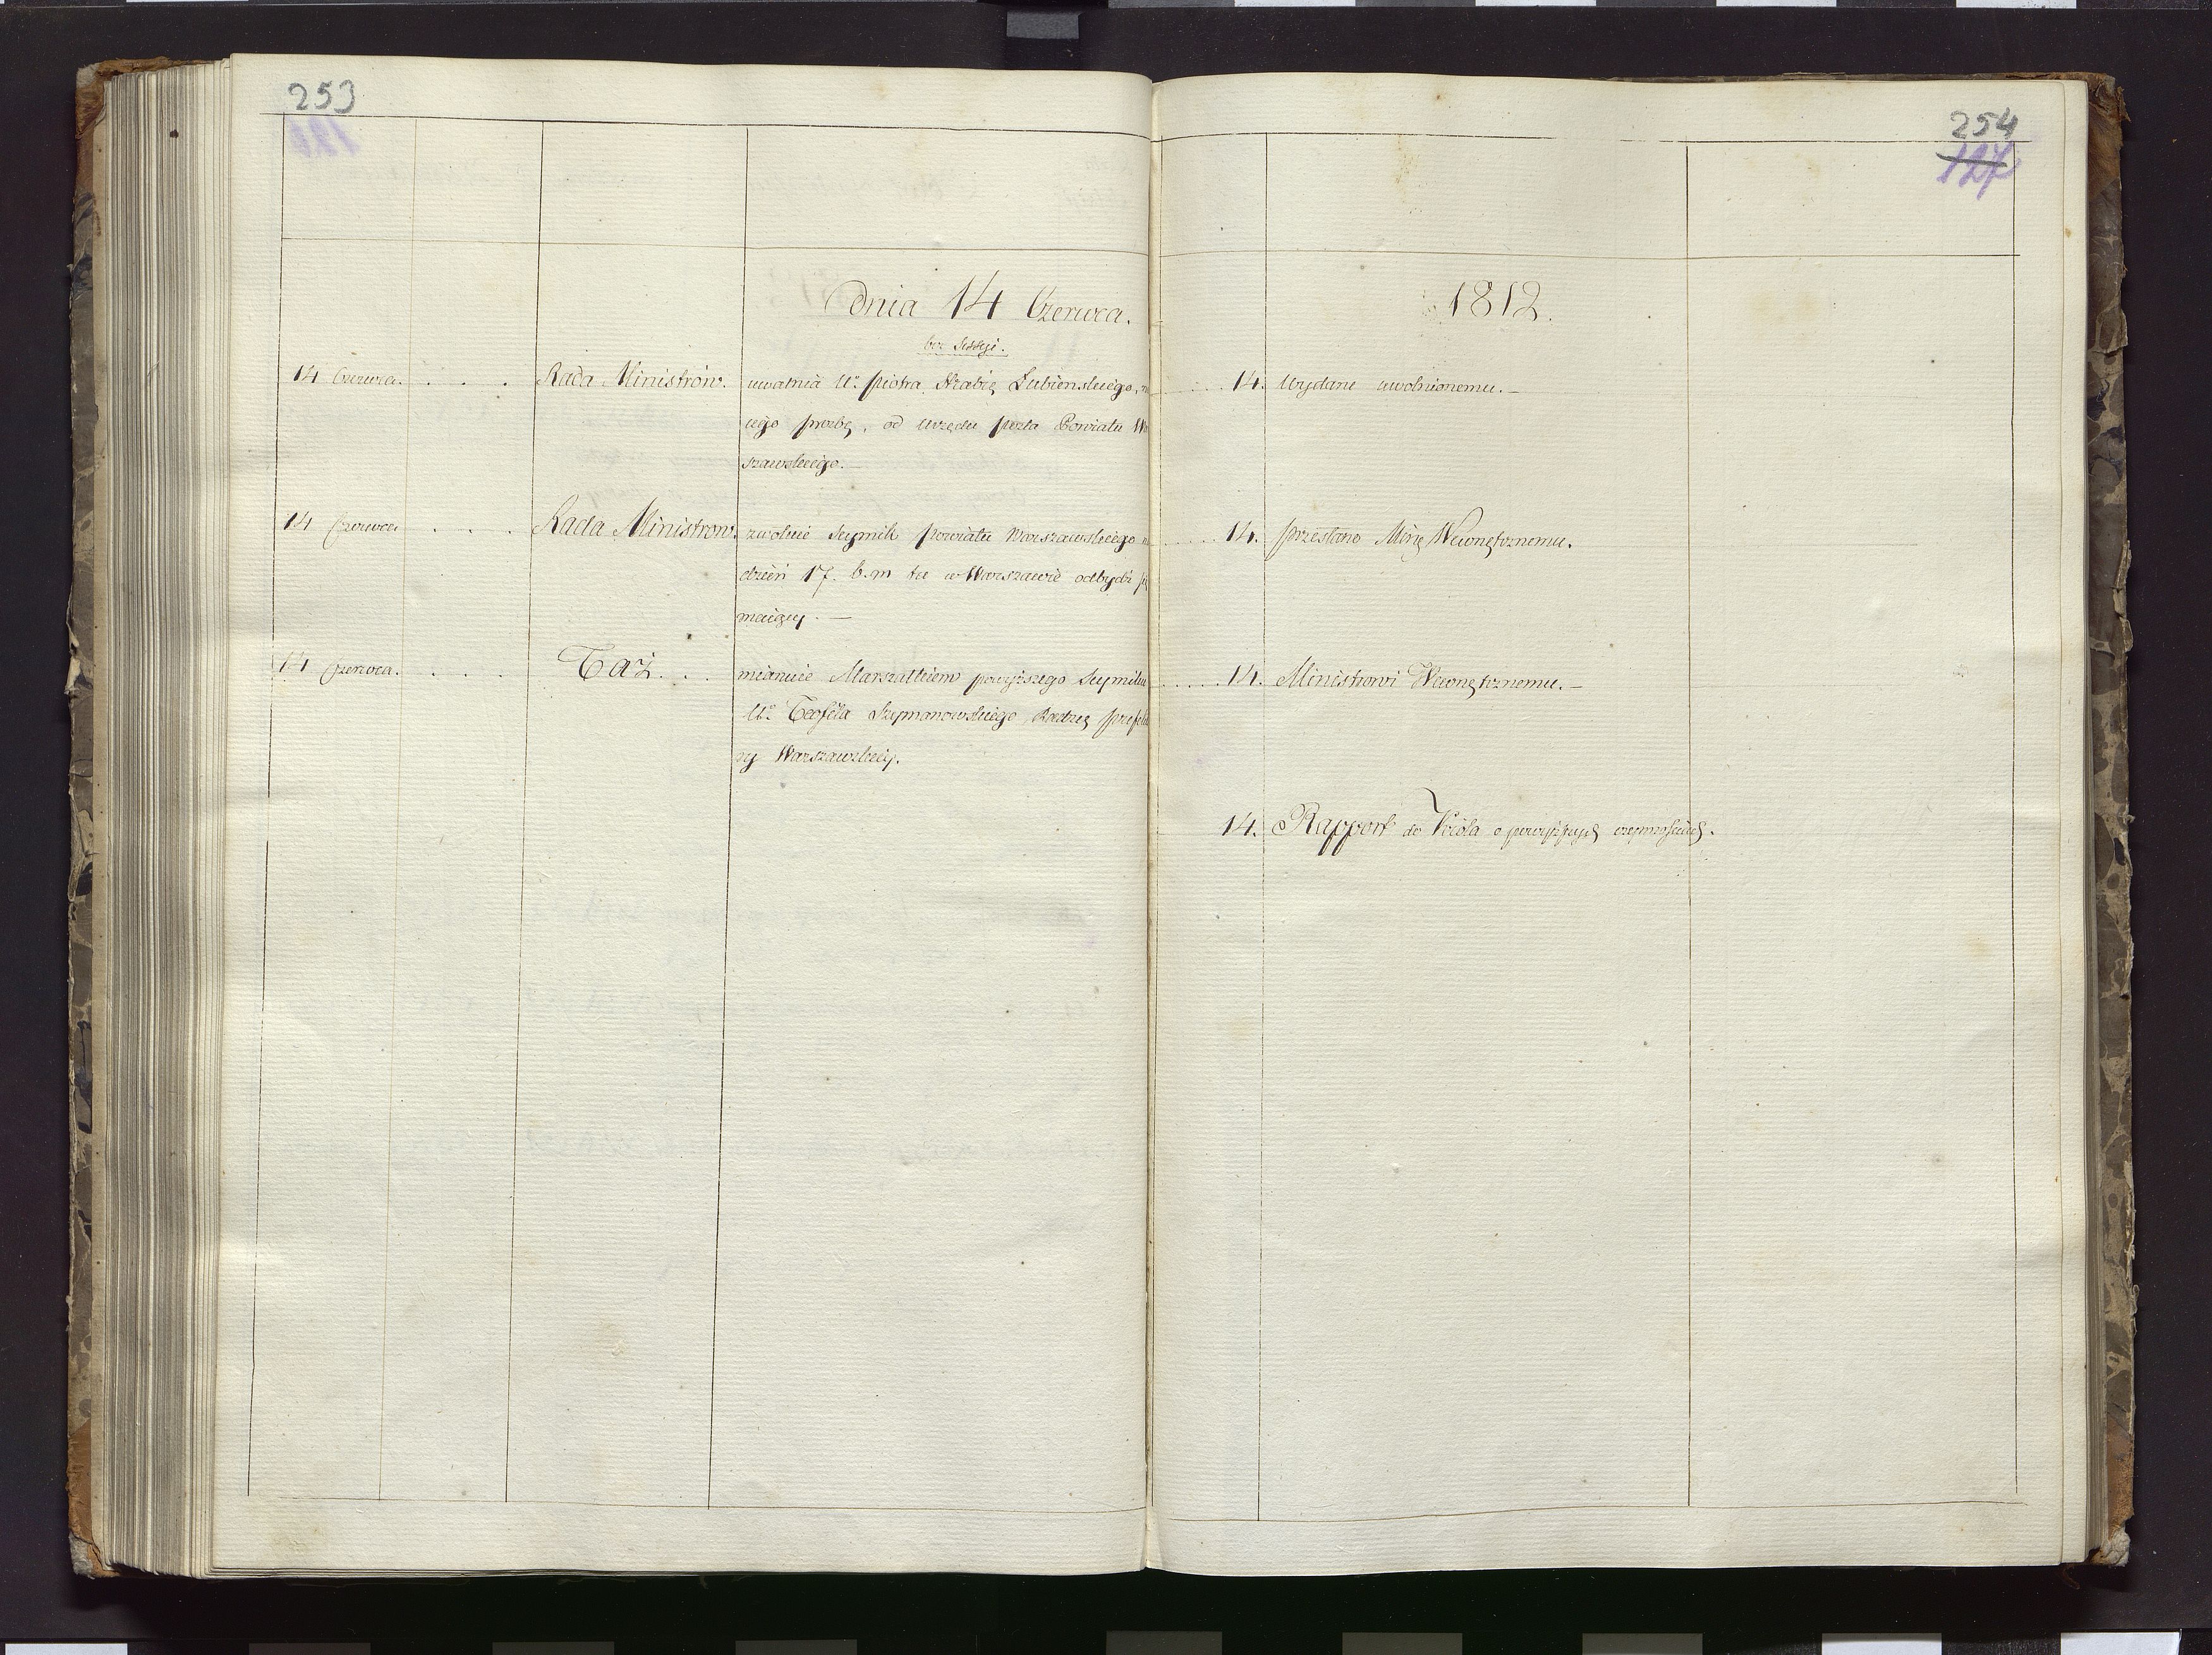 253
254
127
Dnia 14 Czerwca.
1812.
bez Sessyi.
14 Czerwca. . . . Rada Ministrów. uwalnia Uo Piotra Hrabię Łubienskiego, na
iego prozbę, od urzędu posła Powiatu War
szawskiego.—
14. wydane uwolnionemu.—
14 Czerwca . . . Rada Ministrow. zwołuie Seymik powiatu Warszawskiego na
dzień 17. b. m tu w Warszawie odbydź się
maiący. —
14. przesłano Minę Wewnętrznemu.
14 Czerwca. . . . Taż. . . mianuie Marszałkiem powyższego Seymiku
Uo Teofila Szymanowskiego Radzcę prefektu
ry Warszawskiey.
14. Ministrowi Wewnętrznemu.—
14. Rapport do Króla o powyższych czynnościach.